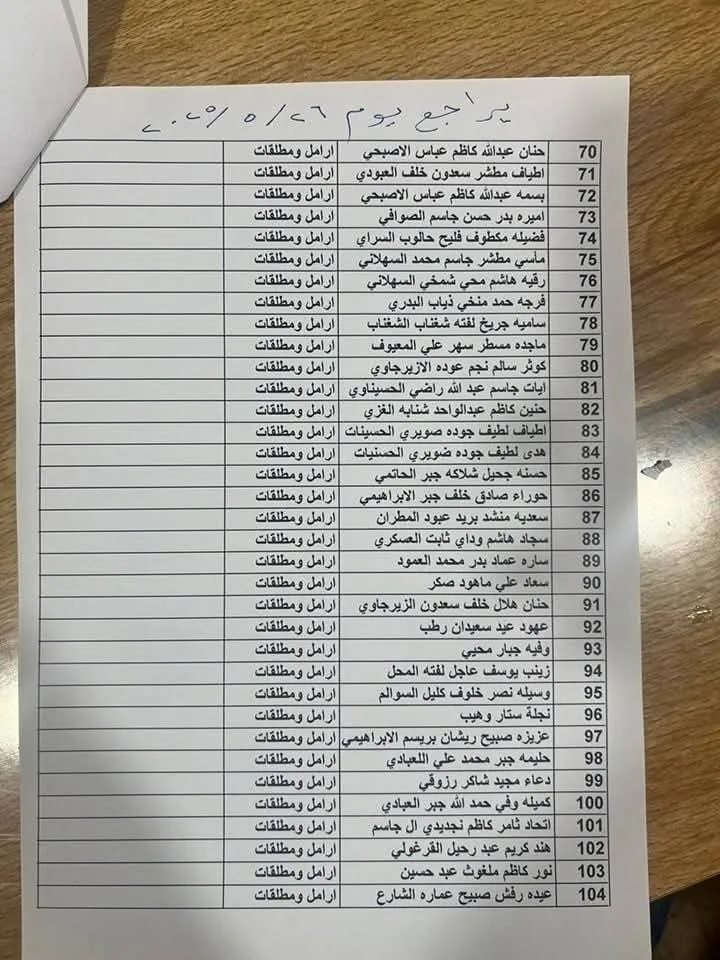 يراجع يوم ٢٦/٥/٢٠٢٥
70 حنان عبدالله كاظم عباس الاصبحي ارامل ومطلقات
71 اطياف مطشر سعدون خلف العبودي ارامل ومطلقات
72 بسمه عبدالله كاظم عباس الاصبحي ارامل ومطلقات
73 اميره بدر حسن جاسم الصوافي ارامل ومطلقات
74 فضيله مكطوف فليح حالوب السراي ارامل ومطلقات
75 مأسي مطشر جاسم محمد السهلاني ارامل ومطلقات
76 رقيه هاشم محي شمخي السهلاني ارامل ومطلقات
77 فرجه حمد منخي ذياب البدري ارامل ومطلقات
78 ساميه جريخ لفته شغناب الشغناب ارامل ومطلقات
79 ماجده مسطر سهر علي المعيوف ارامل ومطلقات
80 كوثر سالم نجم عوده الازيرجاوي ارامل ومطلقات
81 ايات جاسم عبد الله راضي الحسيناوي ارامل ومطلقات
82 حنين كاظم عبدالواحد شنابه الغزي ارامل ومطلقات
83 اطياف لطيف جوده صويري الحسينات ارامل ومطلقات
84 هدى لطيف جوده ضويري الحسنيات ارامل ومطلقات
85 حسنه جحيل شلاكه جبر الحاتمي ارامل ومطلقات
86 حوراء صادق خلف جبر الابراهيمي ارامل ومطلقات
87 سعديه منشد بريد عبود المطران ارامل ومطلقات
88 سجاد هاشم وداي ثابت العسكري ارامل ومطلقات
89 ساره عماد بدر محمد العمود ارامل ومطلقات
90 سعاد علي ماهود صكر ارامل ومطلقات
91 حنان هلال خلف سعدون الزيرجاوي ارامل ومطلقات
92 عهود عيد سعيدان رطب ارامل ومطلقات
93 وفيه جبار محيي ارامل ومطلقات
94 زينب يوسف عاجل لفته المحل ارامل ومطلقات
95 وسيله نصر خلوف كليل السوالم ارامل ومطلقات
96 نجلة ستار وهيب ارامل ومطلقات
97 عزيزه صبيح ريشان بريسم الابراهيمي ارامل ومطلقات
98 حليمه جبر محمد علي اللعبادي ارامل ومطلقات
99 دعاء مجيد شاكر رزوقي ارامل ومطلقات
100 كميله وفي حمد الله جبر العبادي ارامل ومطلقات
101 اتحاد ثامر كاظم نجديدي ال جاسم ارامل ومطلقات
102 هند كريم عبد رحيل القرغولي ارامل ومطلقات
103 نور كاظم ملغوث عبد حسين ارامل ومطلقات
104 عيده رفش صبيح عماره الشارع ارامل ومطلقات